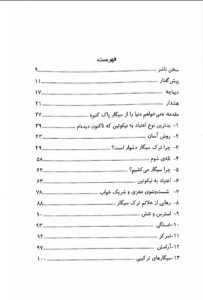 فهرست:
سخن ناشر ۹
پیش‌گفتار ۱۱
دیباچه ۱۷
هشدار ۲۱
مقدمه: «می‌خواهم دنیا را از سیگار پاک کنم» ۲۷
۱- بدترین نوع اعتیاد به نیکوتین که تاکنون دیده‌ام ۳۹
۲- روش آسان ۴۳
۳- چرا ترک سیگار دشوار است؟ ۴۹
۴- تله‌ی شوم ۵۸
۵- چرا سیگار می‌کشیم؟ ۶۲
۶- اعتیاد به نیکوتین ۶۳
۷- شست‌شوی مغزی و شریک خواب ۷۸
۸- رهایی از علائم ترک سیگار
۹- استرس و تنش ۹۰
۱۰- خستگی ۹۳
۱۱- تمرکز ۹۴
۱۲- آرامش ۹۷
۱۳- سیگارهای ترکیبی ۱۰۰